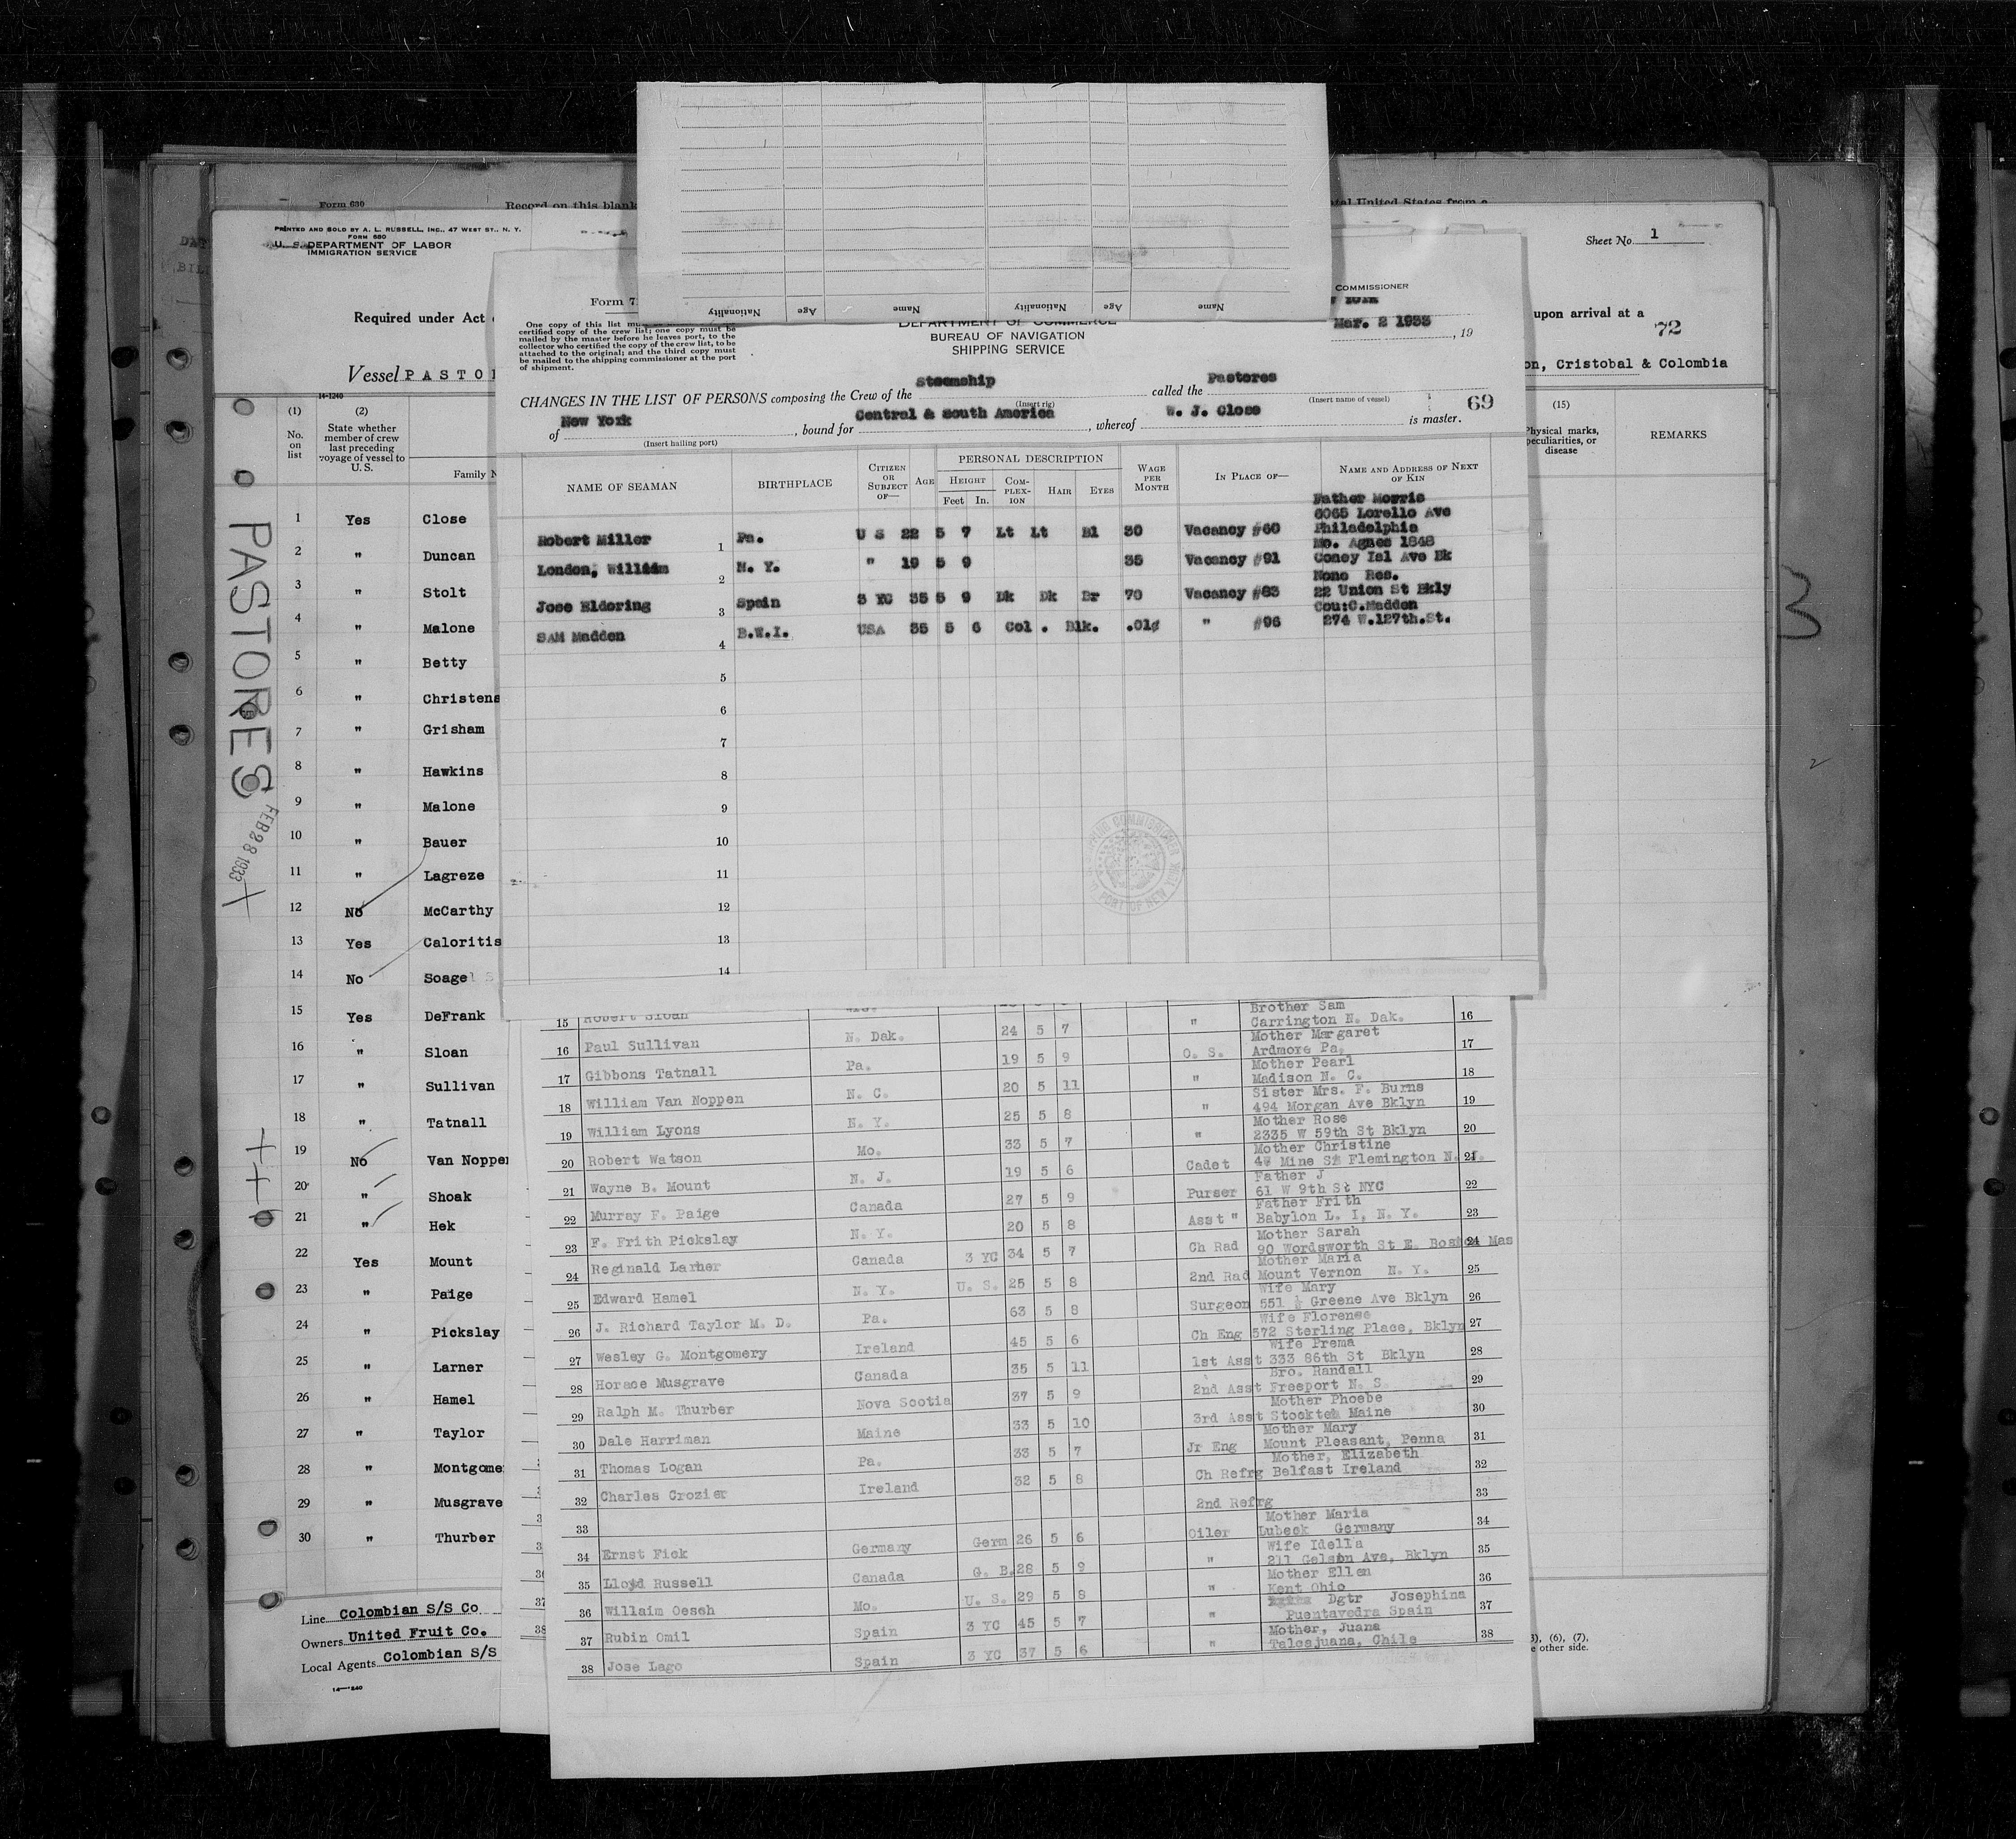 Form 630
Record on this blank
PRINTED AND SOLD BY A. L. RUSSELL, INC., 47 WEST ST., N. Y.
FORM 680
U. S. DEPARTMENT OF LABOR
IMMIGRATION SERVICE
Sheet No. 1
Required under Act
upon arrival at a
72
Vessel PASTO
on, Cristobal & Colombia
14-1240
(1) (2) (15)
No. on list
State whether member of crew last preceding voyage of vessel to U.S.
Family N
Physical marks, peculiarities, or disease
REMARKS
PASTORES
FEB 28 1933
1 Yes Close
2 " Duncan
3 " Stolt
4 " Malone
5 " Betty
6 " Christens
7 " Grisham
8 " Hawkins
9 " Malone
10 " Bauer
11 " Lagreze
12 No McCarthy
13 Yes Caloritis
14 No Soage
15 Yes DeFrank
16 " Sloan
17 " Sullivan
18 " Tatnall
19 No Van Noppe
20 " Shoak
21 " Hek
22 Yes Mount
23 " Paige
24 " Pickslay
25 " Larner
26 " Hamel
27 " Taylor
28 " Montgome
29 " Musgrave
30 " Thurber
Line Colombian S/S Co
Owners United Fruit Co.
Local Agents Colombian S/S
3), (6), (7),
e other side.
3
Name Age Nationality Name Age Nationality
Form 7
COMMISSIONER
One copy of this list
certified copy of the crew list; one copy must be
mailed by the master before he leaves port, to the
collector who certified the copy of the crew list, to be
attached to the original; and the third copy must
be mailed to the shipping commissioner at the port
of shipment.
DEPARTMENT OF COMMERCE
BUREAU OF NAVIGATION
SHIPPING SERVICE
Mar. 2 1933, 19
CHANGES IN THE LIST OF PERSONS composing the Crew of the Steamship called the Pastores
(Insert rig) (Insert name of vessel)
69
of New York, bound for Central & South America, whereof W. J. Close is master.
(Insert hailing port)
NAME OF SEAMAN BIRTHPLACE CITIZEN OR SUBJECT OF— AGE PERSONAL DESCRIPTION WAGE PER MONTH IN PLACE OF— NAME AND ADDRESS OF NEXT OF KIN
HEIGHT Feet In. COMPLEXION HAIR EYES
Father Morris
6065 Lorello Ave
Robert Miller 1 Pa. U S 22 5 7 Lt Lt Bl 30 Vacancy #60 Philadelphia
Mo. Agnes 1848
London, William 2 N. Y. " 19 5 9 35 Vacancy #91 Coney Isl Ave Bk
None Res.
Jose Eldoring 3 Spain 3 YC 35 5 9 Dk Dk Br 70 Vacancy #83 22 Union St Bkly
Cou:C.Madden
SAM Madden 4 B.W.I. USA 35 5 6 Col . Blk. .01¢ " #96 274 W.127th.St.
5
6
7
8
9
10
11
12
13
14
15 Robert Sloan
Brother Sam
16 Paul Sullivan N. Dak. 24 5 7 " Carrington N. Dak. 16
Mother Margaret
17 Gibbons Tatnall Pa. 19 5 9 O. S. Ardmore Pa. 17
Mother Pearl
18 William Van Noppen N. C. 20 5 11 " Madison N. C. 18
Sister Mrs. F. Burns
19 William Lyons N. Y. 25 5 8 " 494 Morgan Ave Bklyn 19
Mother Rose
20 Robert Watson Mo. 33 5 7 " 2335 W 59th St Bklyn 20
Mother Christine
21 Wayne B. Mount N. J. 19 5 6 Cadet Mine St Flemington N. J. 21
Father J
22 Murray F. Paige Canada 27 5 9 Purser 61 W 9th St NYC 22
Father Frith
23 F. Frith Pickslay N. Y. 20 5 8 Asst " Babylon L. I, N. Y. 23
Mother Sarah
24 Reginald Larner Canada 3 YC 34 5 7 Ch Rad 90 Wordsworth St E. Boston Mas 24
Mother Maria
25 Edward Hamel N. Y. U. S. 25 5 8 2nd Rad Mount Vernon N. Y. 25
Wife Mary
26 J. Richard Taylor M. D. Pa. 63 5 8 Surgeon 551 ½ Greene Ave Bklyn 26
Wife Florense
27 Wesley G. Montgomery Ireland 45 5 6 Ch Eng 372 Sterling Place, Bklyn 27
Wife Prema
28 Horace Musgrave Canada 35 5 11 1st Asst 333 86th St Bklyn 28
Bro. Randall
29 Ralph M. Thurber Nova Scotia 37 5 9 2nd Asst Freeport N. S. 29
Mother Phoebe
30 Dale Harriman Maine 33 5 10 3rd Asst Stockton Maine 30
Mother Mary
31 Thomas Logan Pa. 33 5 7 Jr Eng Mount Pleasant, Penna 31
Mother, Elizabeth
32 Charles Crozier Ireland 32 5 8 Ch Refrg Belfast Ireland 32
33 2nd Refrg 33
Mother Maria
34 Ernst Fick Germany Germ 26 5 6 Oiler Lubeck Germany 34
Wife Idella
35 Lloyd Russell Canada G. B. 28 5 9 " 211 Gelston Ave, Bklyn 35
Mother Ellen
36 Willaim Oesch Mo. U. S. 29 5 8 " Kent Ohio 36
Dgtr Josephina
37 Rubin Omil Spain 3 YC 45 5 7 " Puentavedra Spain 37
Mother, Juana
38 Jose Lago Spain 3 YC 37 5 6 " Talcajuana, Chile 38